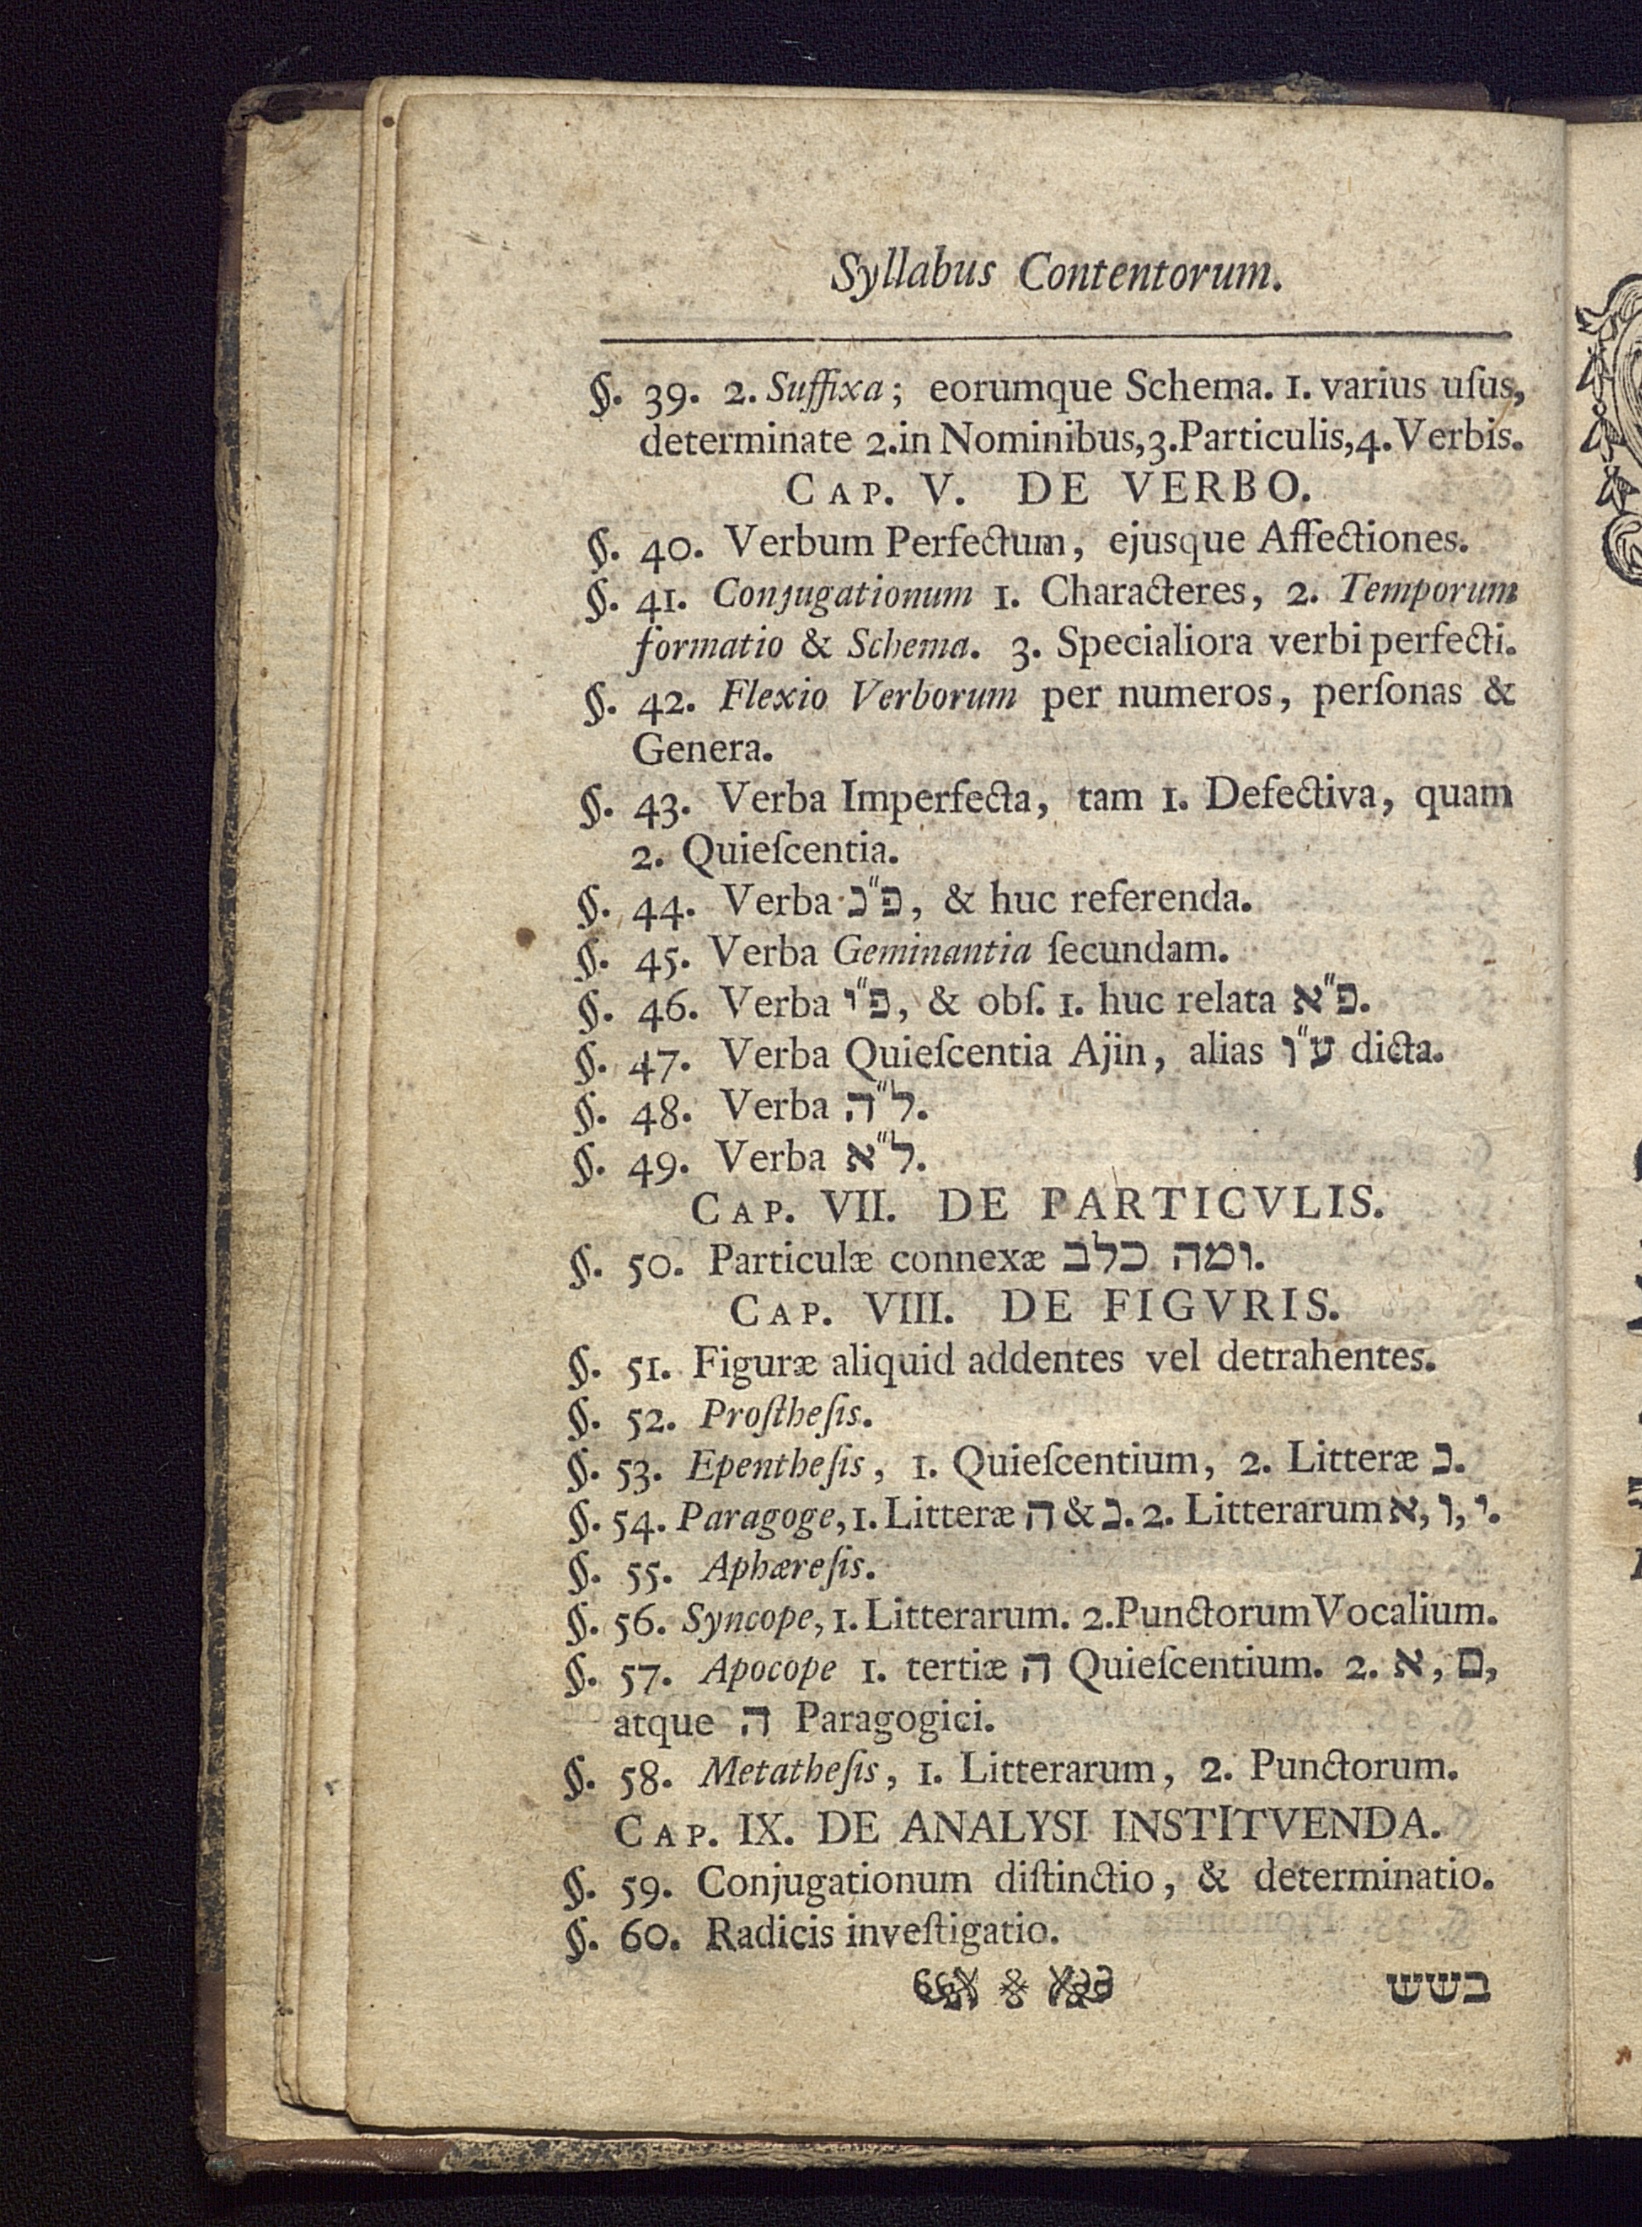 Syllabus Contentorum.
§. 39. 2. Suffixa; eorumque Schema. 1. varius uſus,
determinate 2.in Nominibus,3.Particulis,4.Verbis.
CAP. V. DE VERBO.
§. 40. Verbum Perfectum, ejusque Affectiones.
§. 41. Conjugationum 1. Characteres, 2. Temporum
formatio & Schema. 3. Specialiora verbi perfecti.
§. 42. Flexio Verborum per numeros, perſonas &
Genera.
§. 43. Verba Imperfecta, tam 1. Defectiva, quam
2. Quieſcentia.
§. 44. Verba פ״נ, & huc referenda.
§. 45. Verba Geminantia ſecundam.
§. 46. Verba פ״י, & obſ. 1. huc relata פ״א.
§. 47. Verba Quieſcentia Ajin, alias ע״ו dicta.
§. 48. Verba ל״ה.
§. 49. Verba ל״א.
CAP. VII. DE PARTICVLIS.
§. 50. Particulæ connexæ ומה כלב.
CAP. VIII. DE FIGVRIS.
§. 51. Figuræ aliquid addentes vel detrahentes.
§. 52. Proſtheſis.
§. 53. Epentheſis, 1. Quieſcentium, 2. Litteræ נ.
§. 54. Paragoge, 1. Litteræ ה & נ. 2. Litterarum א, ו, י.
§. 55. Aphæreſis.
§. 56. Syncope, 1. Litterarum. 2.Punctorum Vocalium.
§. 57. Apocope 1. tertiæ ה Quieſcentium. 2. א, ם,
atque ה Paragogici.
§. 58. Metatheſis, 1. Litterarum, 2. Punctorum.
CAP. IX. DE ANALYSI INSTITVENDA.
§. 59. Conjugationum diſtinctio, & determinatio.
§. 60. Radicis inveſtigatio.
בשש